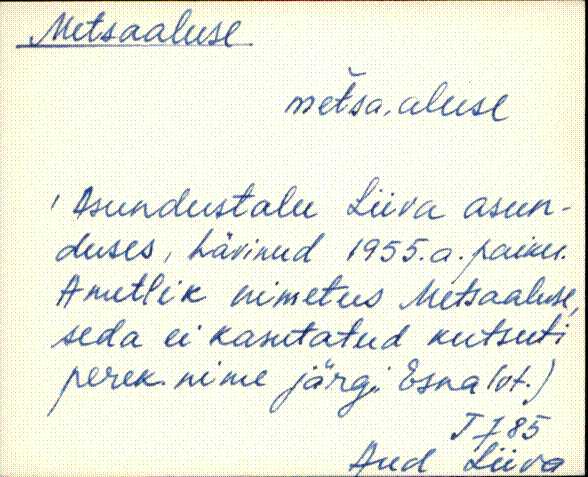 Metsaaluse
mètsa,aluse
Asundustalu Liiva asun-
duses, hävinud 1955. a. paiku.
Ametlik nimetus Metsaaluse,
seda ei kasutatud kutsuti
perek. nime järgi Esna (vt.)
Aud Liiva